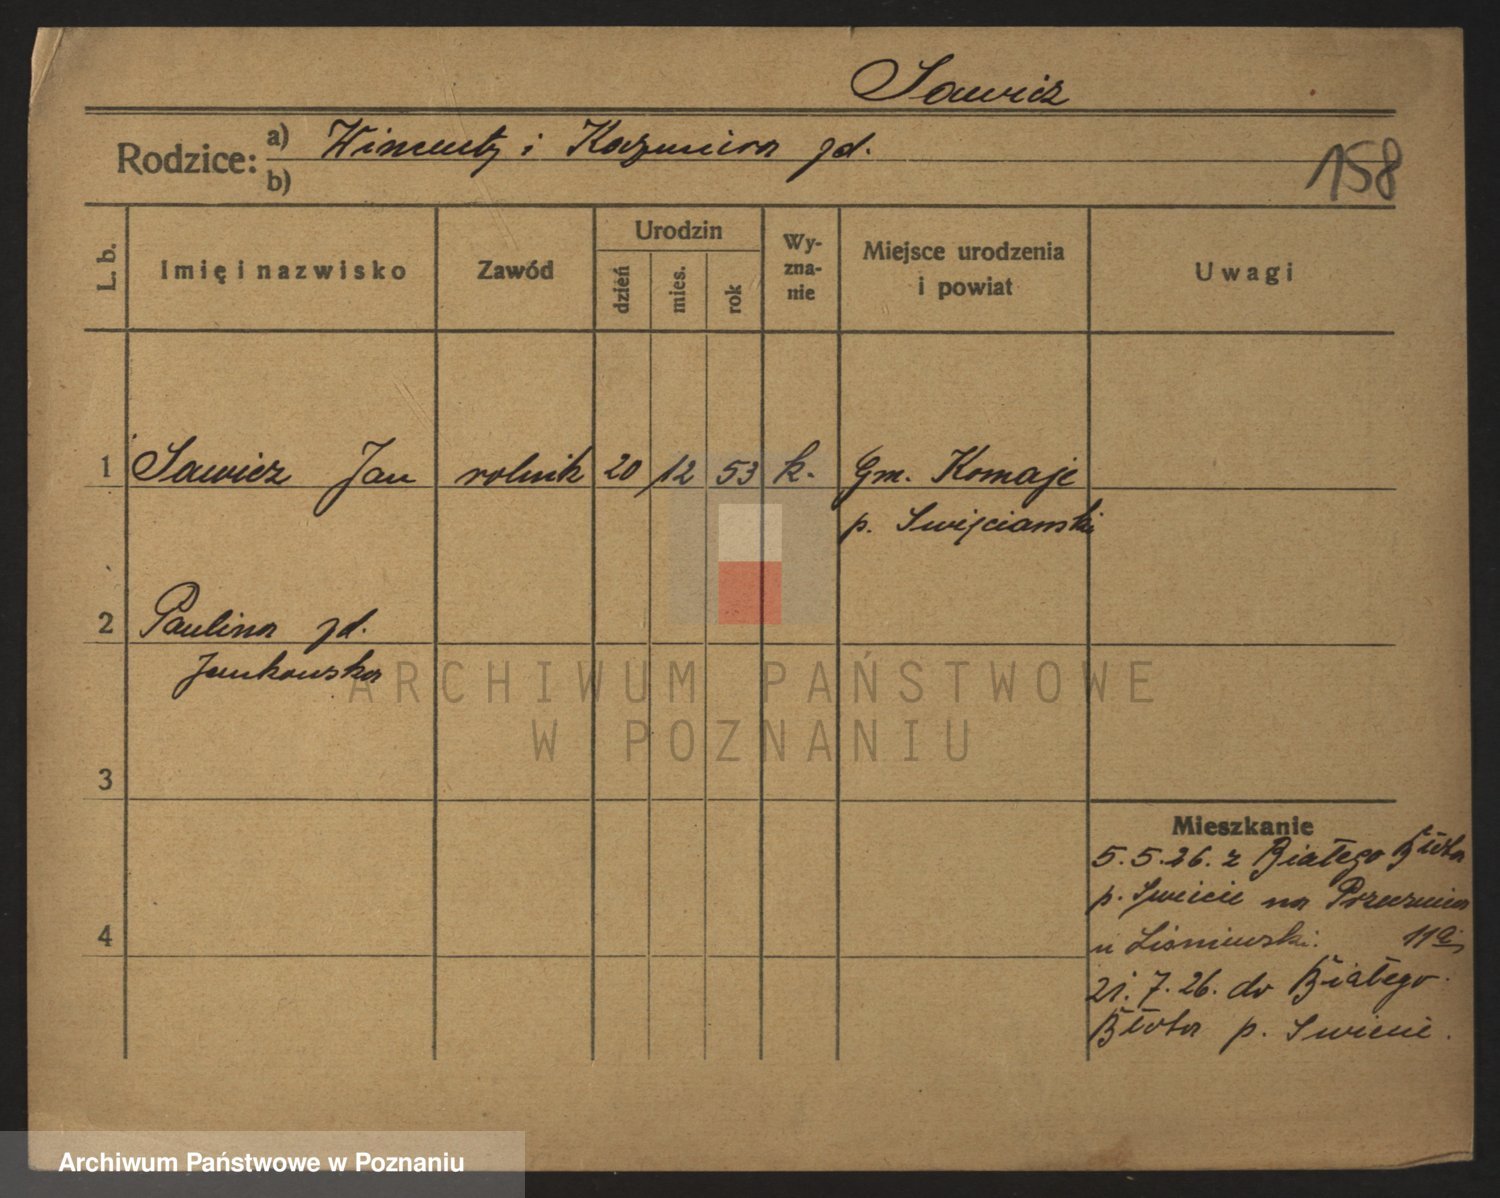 Sawicz
Rodzice: a) Wincenty i Kazimiera zd.
b)
158
L. b.
Imię i nazwisko
Zawód
Urodzin
dzień
mies.
rok
Wy-
zna-
nie
Miejsce urodzenia
i powiat
Uwagi
1 Sawicz Jan rolnik 20 12 53 k. Gm. Komaje
p. Swięcianski
2 Paulina zd.
Jankowska
ARCHIWUM PAŃSTWOWE
W POZNANIU
3
Mieszkanie
5.5.26. z Białego Błota
p. Swiecie na Przecznica
4
u Lisniewski. 11a
21.7.26. do Białego
Błota p. Swiecie.
Archiwum Państwowe w Poznaniu